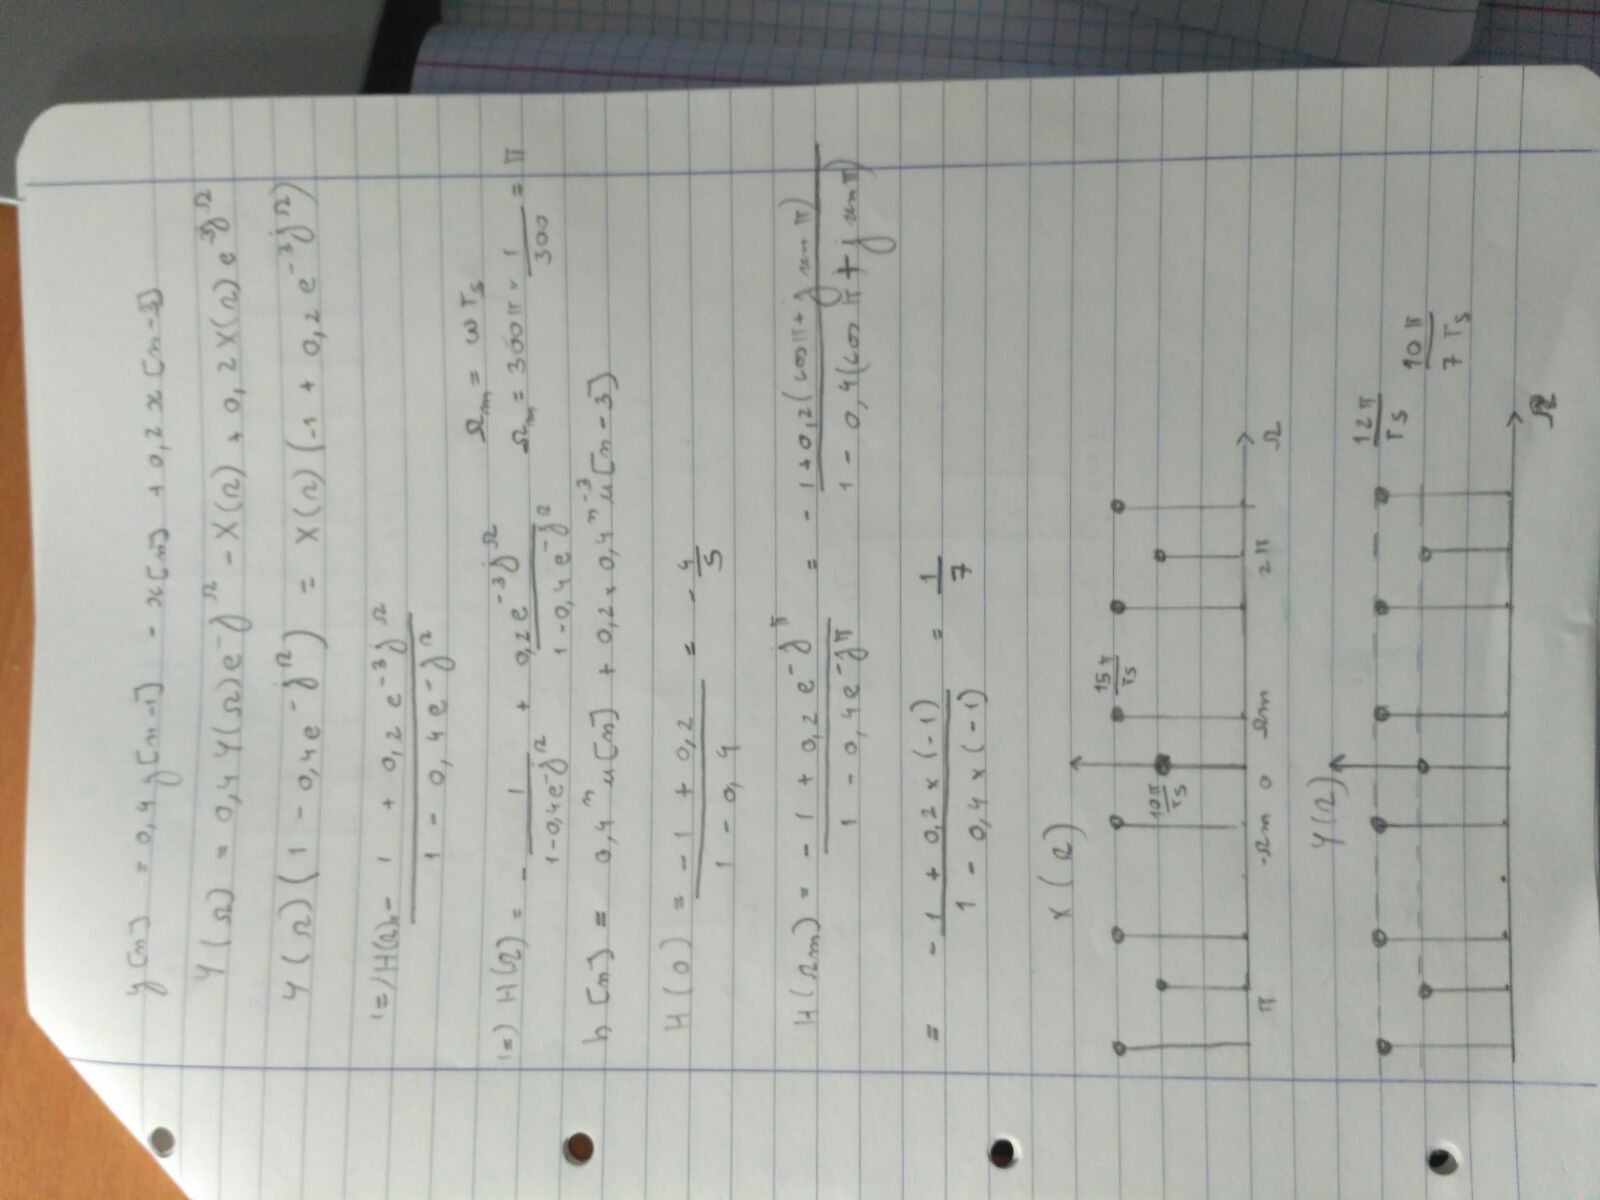 y[n] = 0,4 y[n-1] - x[n] + 0,2 x[n-3]
Y(Ω) = 0,4 Y(Ω) e^-jΩ - X(Ω) + 0,2 X(Ω) e^-3jΩ
Y(Ω) (1 - 0,4 e^-jΩ) = X(Ω) (-1 + 0,2 e^-3jΩ)
(=) H(Ω) = - 1 + 0,2 e^-3jΩ / 1 - 0,4 e^-jΩ
Ωm = ω Ts
(=) H(Ω) = - 1 / 1 - 0,4 e^-jΩ + 0,2 e^-3jΩ / 1 - 0,4 e^-jΩ
Ωm = 300π × 1/300 = π
h[n] = 0,4^n u[n] + 0,2 × 0,4^n-3 u[n-3]
H(0) = - 1 + 0,2 / 1 - 0,4 = - 4/5
H(Ωm) = - 1 + 0,2 e^-jπ / 1 - 0,4 e^-jπ = - 1 + 0,2 (cos π + j sin π) / 1 - 0,4 (cos π + j sin π)
= - 1 + 0,2 × (-1) / 1 - 0,4 × (-1) = 1/7
X(Ω)
15π/Ts
10π/Ts
π -Ωm 0 Ωm 2π Ω
Y(Ω)
12π/Ts
10π/7Ts
Ω